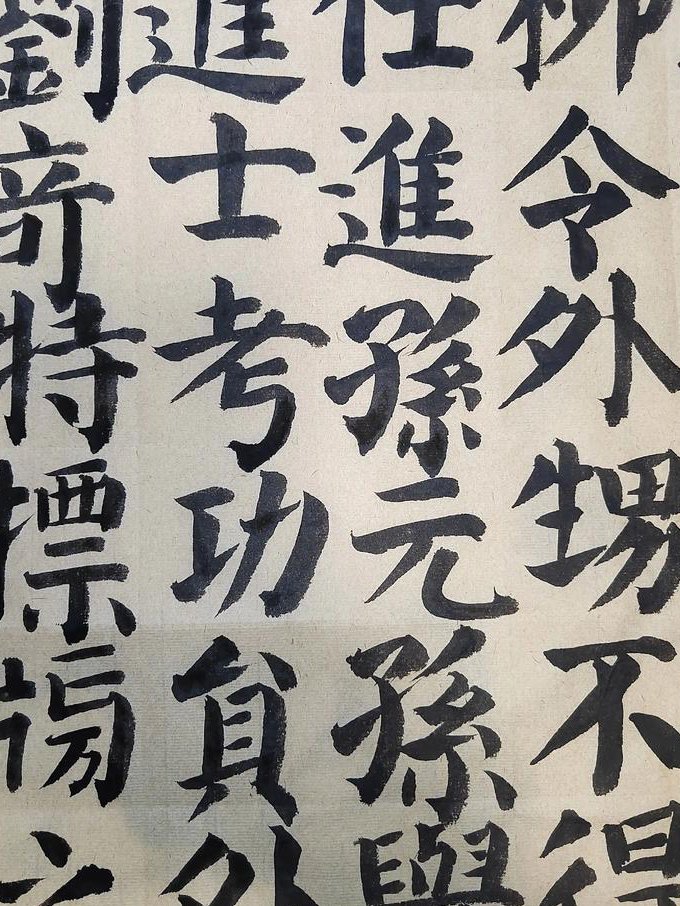 柳令外甥不得
任進孫元孫與
進士考功貟外
劉竒特標榜之